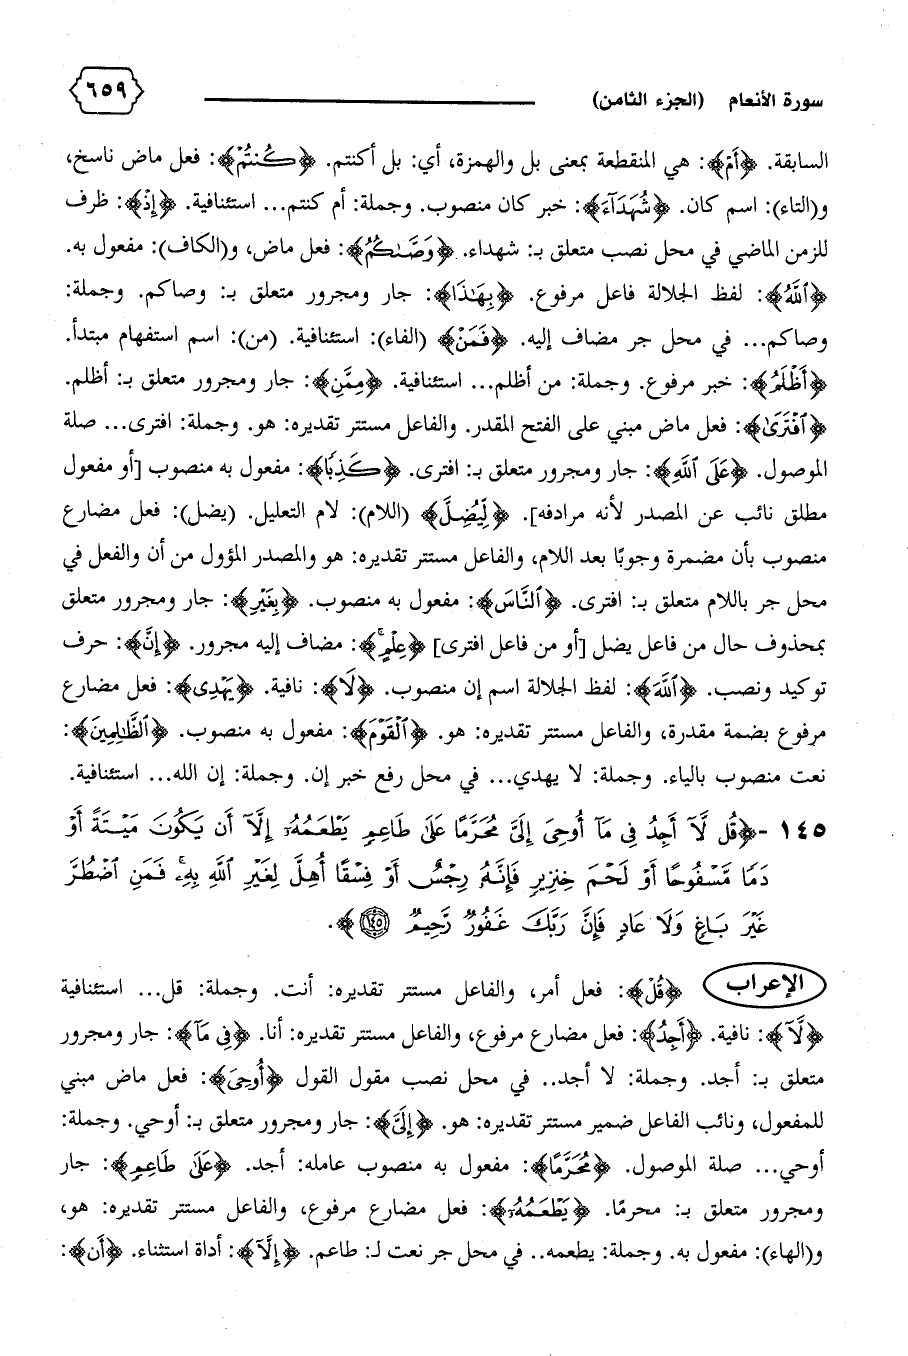 سورة الأنعام (الجزء الثامن) ٦٥٩
السابقة. ﴿أَمْ﴾: هي المنقطعة بمعنى بل والهمزة، أي: بل أكنتم. ﴿كُنتُمْ﴾: فعل ماض ناسخ،
و(التاء): اسم كان. ﴿شُهَدَآءَ﴾: خبر كان منصوب. وجملة: أم كنتم... استئنافية. ﴿إِذْ﴾: ظرف
للزمن الماضي في محل نصب متعلق بـ: شهداء. ﴿وَصَّىٰكُمُ﴾: فعل ماض، و(الكاف): مفعول به.
﴿ٱللَّهُ﴾: لفظ الجلالة فاعل مرفوع. ﴿بِهَٰذَا﴾: جار ومجرور متعلق بـ: وصاكم. وجملة:
وصاكم... في محل جر مضاف إليه. ﴿فَمَنْ﴾ (الفاء): استئنافية. (من): اسم استفهام مبتدأ.
﴿أَظْلَمُ﴾: خبر مرفوع. وجملة: من أظلم... استئنافية. ﴿مِمَّنِ﴾: جار ومجرور متعلق بـ: أظلم.
﴿ٱفْتَرَىٰ﴾: فعل ماض مبني على الفتح المقدر. والفاعل مستتر تقديره: هو. وجملة: افترى... صلة
الموصول. ﴿عَلَى ٱللَّهِ﴾: جار ومجرور متعلق بـ: افترى. ﴿كَذِبًا﴾: مفعول به منصوب [أو مفعول
مطلق نائب عن المصدر لأنه مرادفه]. ﴿لِّيُضِلَّ﴾ (اللام): لام التعليل. (يضل): فعل مضارع
منصوب بأن مضمرة وجوبًا بعد اللام، والفاعل مستتر تقديره: هو والمصدر المؤول من أن والفعل في
محل جر باللام متعلق بـ: افترى. ﴿ٱلنَّاسَ﴾: مفعول به منصوب. ﴿بِغَيْرِ﴾: جار ومجرور متعلق
بمحذوف حال من فاعل يضل [أو من فاعل افترى] ﴿عِلْمٍۚ﴾: مضاف إليه مجرور. ﴿إِنَّ﴾: حرف
توكيد ونصب. ﴿ٱللَّهَ﴾: لفظ الجلالة اسم إن منصوب. ﴿لَا﴾: نافية. ﴿يَهْدِى﴾: فعل مضارع
مرفوع بضمة مقدرة، والفاعل مستتر تقديره: هو. ﴿ٱلْقَوْمَ﴾: مفعول به منصوب. ﴿ٱلظَّٰلِمِينَ﴾:
نعت منصوب بالياء. وجملة: لا يهدي... في محل رفع خبر إن. وجملة: إن الله... استئنافية.
١٤٥ - ﴿قُل لَّآ أَجِدُ فِى مَآ أُوحِىَ إِلَىَّ مُحَرَّمًا عَلَىٰ طَاعِمٍ يَطْعَمُهُۥٓ إِلَّآ أَن يَكُونَ مَيْتَةً أَوْ
دَمًا مَّسْفُوحًا أَوْ لَحْمَ خِنزِيرٍ فَإِنَّهُۥ رِجْسٌ أَوْ فِسْقًا أُهِلَّ لِغَيْرِ ٱللَّهِ بِهِۦۚ فَمَنِ ٱضْطُرَّ
غَيْرَ بَاغٍ وَلَا عَادٍ فَإِنَّ رَبَّكَ غَفُورٌ رَّحِيمٌ ١٤٥﴾.
الإعراب ﴿قُل﴾: فعل أمر، والفاعل مستتر تقديره: أنت. وجملة: قل... استئنافية
﴿لَّآ﴾: نافية. ﴿أَجِدُ﴾: فعل مضارع مرفوع، والفاعل مستتر تقديره: أنا. ﴿فِى مَآ﴾: جار ومجرور
متعلق بـ: أجد. وجملة: لا أجد.. في محل نصب مقول القول ﴿أُوحِىَ﴾: فعل ماض مبني
للمفعول، ونائب الفاعل ضمير مستتر تقديره: هو. ﴿إِلَىَّ﴾: جار ومجرور متعلق بـ: أوحي. وجملة:
أوحي... صلة الموصول. ﴿مُحَرَّمًا﴾: مفعول به منصوب عامله: أجد. ﴿عَلَىٰ طَاعِمٍ﴾: جار
ومجرور متعلق بـ: محرمًا. ﴿يَطْعَمُهُۥٓ﴾: فعل مضارع مرفوع، والفاعل مستتر تقديره: هو،
و(الهاء): مفعول به. وجملة: يطعمه.. في محل جر نعت لـ: طاعم. ﴿إِلَّآ﴾: أداة استثناء. ﴿أَن﴾: